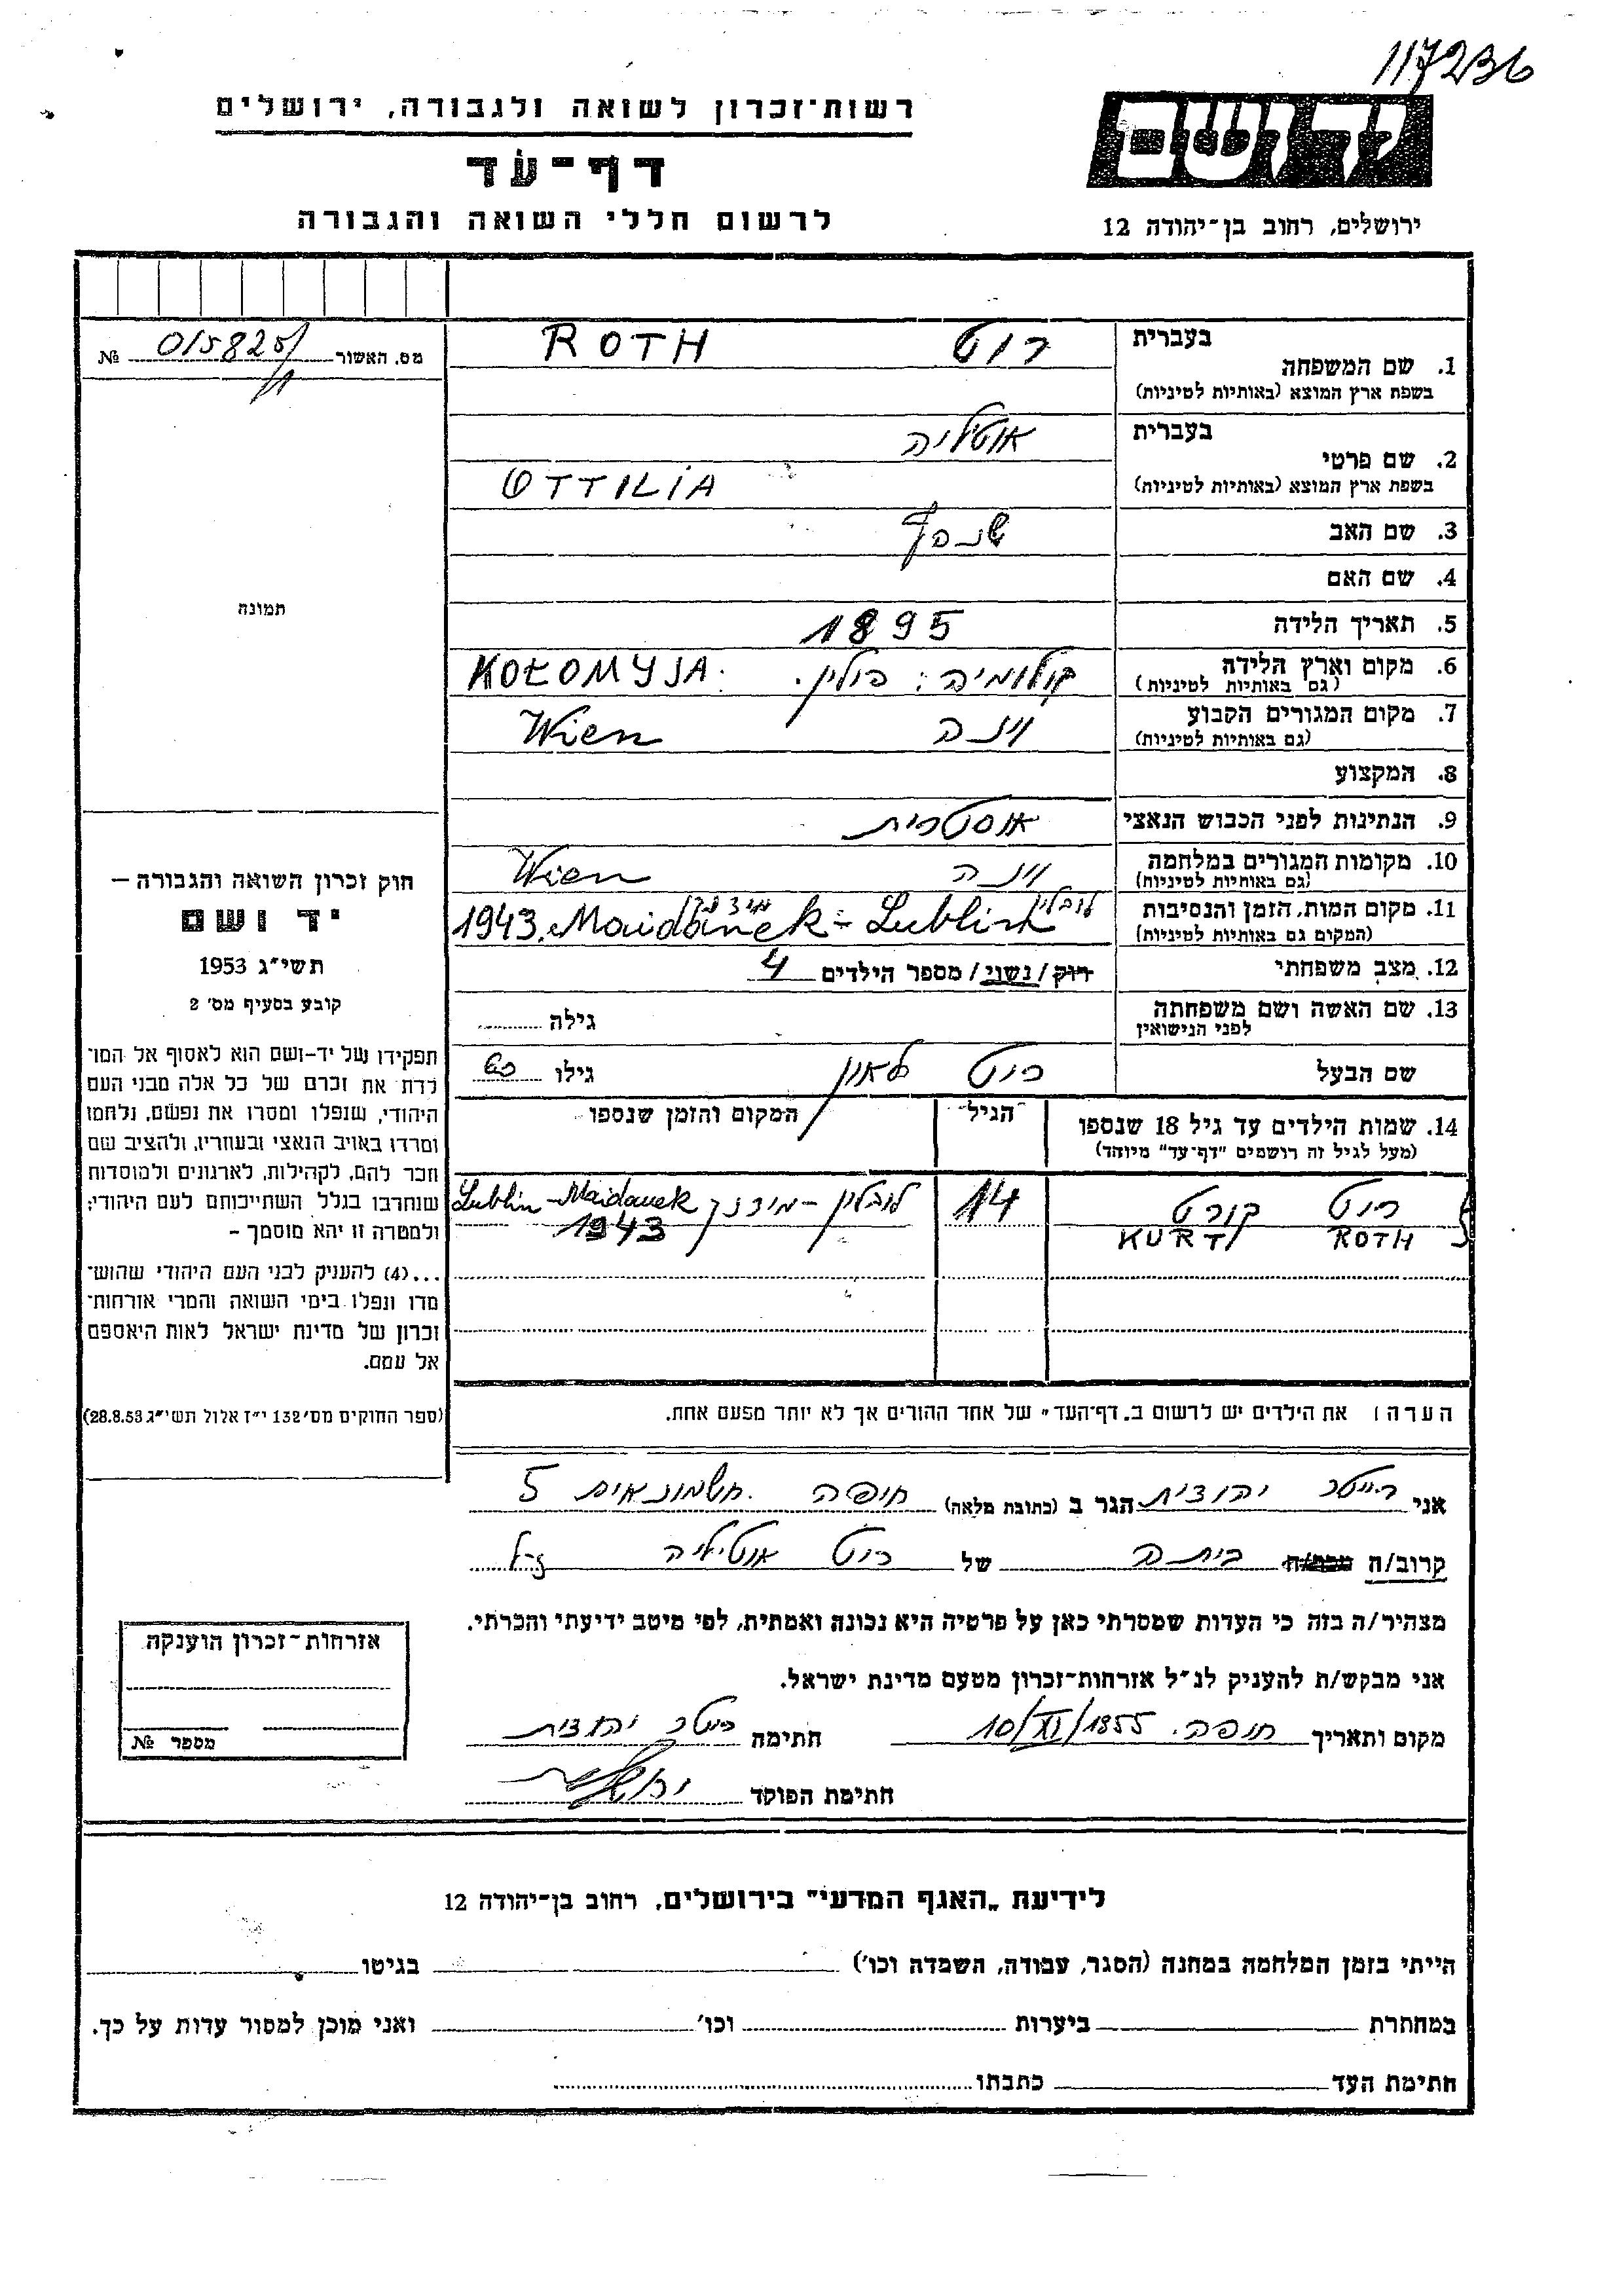 117236
ידושם
רשות־זכרון לשואה ולגבורה, ירושלים
דף־עד
לרשום חללי השואה והגבורה
ירושלים, רחוב בן־יהודה 12
בעברית
1. שם המשפחה רוט ROTH
בשפת ארץ המוצא (באותיות לטיניות)
בעברית אוטליה
2. שם פרטי
בשפת ארץ המוצא (באותיות לטיניות) OTTILIA
3. שם האב
4. שם האם
5. תאריך הלידה 1895
6. מקום וארץ הלידה קולומיה: פולין. KOŁOMYJA.
(גם באותיות לטיניות)
7. מקום המגורים הקבוע וינה Wien
(גם באותיות לטיניות)
8. המקצוע
9. הנתינות לפני הכבוש הנאצי אוסטרית
10. מקומות המגורים במלחמה וינה Wien
(גם באותיות לטיניות)
11. מקום המות, הזמן והנסיבות לובלין מידנק
(המקום גם באותיות לטיניות) 1943. Maidanek - Lublin
12. מצב משפחתי רוק/נשוי/ מספר הילדים 4
13. שם האשה ושם משפחתה גילה
לפני הנישואין
שם הבעל רוט לאון גילו 60
14. שמות הילדים עד גיל 18 שנספו הגיל המקום והזמן שנספו
(מעל לגיל זה רושמים "דף־עד" מיוחד)
רוט קורט 14 לובלין - מידנק Lublin - Maidanek
ROTH KURT 1943
הערה: את הילדים יש לרשום ב„דף־העד" של אחד ההורים אך לא יותר מפעם אחת.
מס. האשור 015825 №
תמונה
חוק זכרון השואה והגבורה –
יד ושם
תשי"ג 1953
קובע בסעיף מס' 2
תפקידו של יד-ושם הוא לאסוף אל המו־
לדת את זכרם של כל אלה מבני העם
היהודי, שנפלו ומסרו את נפשם, נלחמו
ומרדו באויב הנאצי ובעוזריו, ולהציב שם
וזכר להם, לקהילות, לארגונים ולמוסדות
שנחרבו בגלל השתייכותם לעם היהודי;
ולמטרה זו יהא מוסמך –
...(4) להעניק לבני העם היהודי שהוש־
מדו ונפלו בימי השואה והמרי אזרחות־
זכרון של מדינת ישראל לאות היאספם
אל עמם.
(ספר החוקים מס' 132 י"ז אלול תשי"ג 28.8.53)
אני יהודית הגר ב (כתובת מלאה) חיפה. חשמונאים 5
קרוב/ה מכר/ה ביתה של רוט אוטיליה ז"ל
מצהיר/ה בזה כי העדות שמסרתי כאן על פרטיה היא נכונה ואמתית, לפי מיטב ידיעתי והכרתי.
אני מבקש/ת להעניק לנ"ל אזרחות־זכרון מטעם מדינת ישראל.
מקום ותאריך חיפה. 10/XI/1955 חתימה יהודית
חתימת הפוקד
אזרחות־זכרון הוענקה
מספר №
לידיעת „האגף המדעי" בירושלים, רחוב בן־יהודה 12
הייתי בזמן המלחמה במחנה (הסגר, עבודה, השמדה וכו') בגיטו
במחתרת ביערות וכו' ואני מוכן למסור עדות על כך.
חתימת העד כתבתו